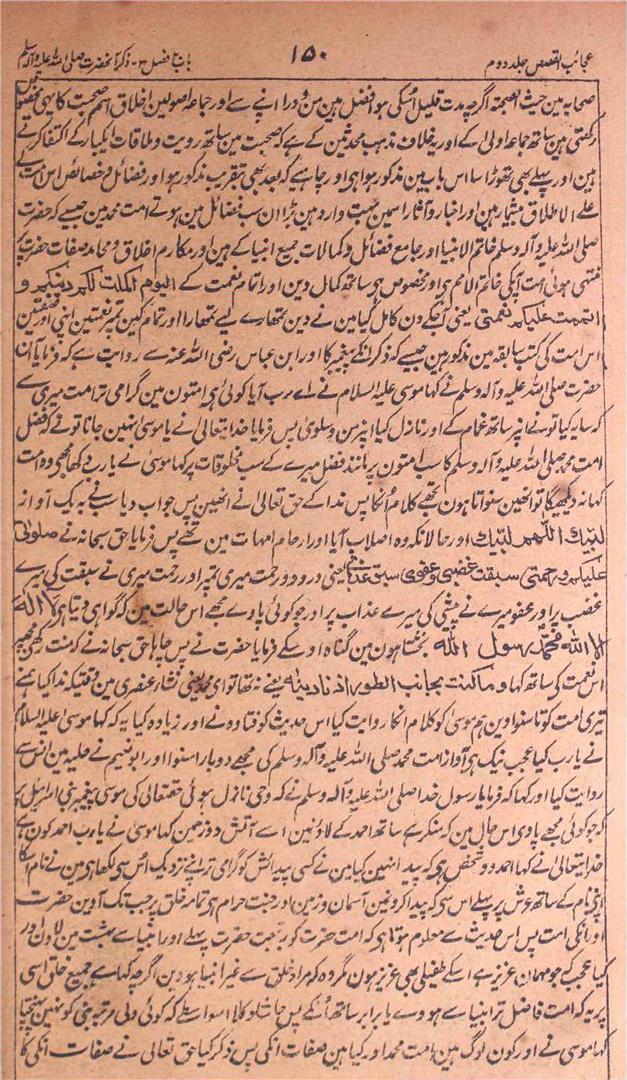 عجائب القصص جلد دوم ۱۵۰ باب ۲ فصل ۳ - ذکر آنحضرت صلی اللہ علیہ وآلہ وسلم
صحابہ مین حیث الصحبتہ اگرچہ مدت قلیل اُسکی ہو افضل ہین من ورائے سے اور جماعہ اصولیین اخلاق اسم صحبت کا یہی مخصوص
رکھتی ہین ساتھ جماعہ اولیٰ کے اور یہ خلاف مذہب محدثین کے ہے کہ صحبت مین ساتھ رویت و ملاقات ایکبار کے اکتفا کرتے
ہین اور پہلے بھی تھوڑا سا اس باب مین مذکور ہوا ہی اور چاہیے کہ بعد بھی تقریب مذکور ہو اور فضائل و خصائص اس امت کے
علے الاطلاق بیشمار ہین اور اخبار و آثار اسمین بہت وارد ہین بڑا ان سب فضائل مین ہوتے امت محمد مین جیسے کہ حضرت
صلی اللہ علیہ وآلہ وسلم خاتم الانبیا اور جامع فضائل و کمالات جمیع انبیا کے ہین اور مکارم اخلاق و محامد صفات حضرت پر
منتہی ہوئی امت آپکی خاتم الامم ہی اور مخصوص ہی ساتھ کمال دین اور اتمام نعمت کے الیوم اکملت لکم دینکم و
اتممت علیکم نعمتی یعنی آجکے دن کامل کیا مین نے دین تمھارے لیے تمھارا اور تمام کین تمپر نعمتین اپنی اور صفتین
اس امت کی کتب سابقہ مین مذکور ہین جیسے کہ ذکر انکے پیغمبر کا اور ابن عباس رضی اللہ عنہ سے روایت ہے کہ فرمایا آن
حضرت صلی اللہ علیہ وآلہ وسلم نے کہا موسیٰ علیہ السلام نے اے رب آیا کوئی ہی امتون مین گرامی تر امت میری سے
کہ سایہ کیا تو نے اپر ساتھ غمام کے اور نازل کیا اپر من و سلویٰ پس فرمایا خدایتعالیٰ نے یا موسیٰ نہین جانا تو نے کہ فضل
امت محمد صلی اللہ علیہ وآلہ وسلم کا سب امتون پر مانند فضل میرے کے سب مخلوقات پر کہا موسیٰ نے یا رب دکھا مجھے وہ امت
کہا نہ دیکھیگا تو انھین سنواتا ہون تجھے کلام اُنکا پس ندا کے حق تعالیٰ نے انھین پس جواب دیا سب نے بہ یک آواز
لبیك اللھم لبیك اور حالانکہ وہ اصلاب آبا اور ارحام امہات مین تھے پس فرمایا حق سبحانہ نے صلوتی
علیکم ورحمتی سبقت غضبی وعفوی سبق عذابی یعنی درود و رحمت میری تمپر اور رحمت میری نے سبقت کی میرے
غضب پر اور عفو میرے نے پیشی کی میرے عذاب پر اور جو کوئی پاوے مجھے اس حالت مین کہ گواہی دیتا ہو لا الہ
الا اللہ محمد رسول اللہ بخشتا ہون مین گناہ اوسکے فرمایا حضرت نے پس چاہا حق سبحانہ نے کہ منت رکھی مجھپر
اس نعمت کی ساتھ کہا و ما کنت بجانب الطور اذ نادینا یعنے نہ تھا تو ای محمد یعنی نشاء عنصری مین وقتیکہ ندا کیا ہمنے
تیری امت کو تا سنوا دین ہم موسیٰ کو کلام انکا روایت کیا اس حدیث کو قتادہ نے اور زیادہ کیا یہ کہ کہا موسیٰ علیہ السلام
نے یا رب کیا عجب نیک ہی آواز امت محمد صلی اللہ علیہ وآلہ وسلم کی مجھے دوبار استنوا اور ابو نعیم نے حلیہ مین انس سے
روایت کیا اور کہا کہ فرمایا رسول خدا صلی اللہ علیہ وآلہ وسلم نے کہ وحی نازل ہوئی حقتعالیٰ کی موسیٰ پیغمبر بنی اسرائیل پر
کہ جو کوئی مجھے پاوے اس حال مین کہ منکر ہے ساتھ احمد کے لاؤنمین اسے آتش دوزخ مین کہا موسیٰ نے یا رب احمد کون ہے
خدایتعالیٰ نے کہا احمد وہ شخص ہی کہ پیدا نہین کیا مین نے کسی پیدائش کو گرامی تر اپنے نزدیک اس سی لکھا ہی مین نے نام اسکا
اپنی نام کے ساتھ عرش پر پہلے اس سی کہ پیدا کرونمین آسمان و زمین اور جنت حرام ہی تمامہ خلق پر جب تک آوین حضرت
اور انکی امت پس اس حدیث سے معلوم ہوتا ہی کہ امت حضرت کو بہ تبعیت حضرت پہلے اور انبیا سے بہشت مین لاوین اور
کیا عجب کہ جو مہمان عزیز ہے اسکے طفیلی بھی عزیز ہون مگر وہ کہ مراد خلق سے غیر انبیا ہو دین اگرچہ کہا ہے جمیع خلق اسی
پر یہ کہ امت فاضل تر انبیا سے ہووے یا برابر ساتھ اُنکے پس حاشا و کلا اسواسطے کہ کوئی ولی مرتبہ نبی کو نہین پہنچتا
کہا موسیٰ نے اور کون لوگ ہین امت محمد اور کیا ہین صفات انکی پس ذکر کیا حق تعالیٰ نے صفات انکی کا